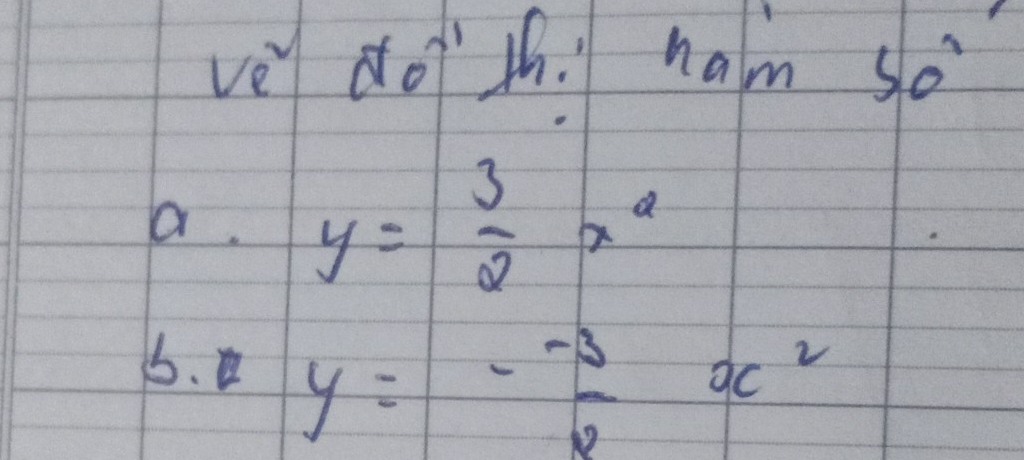 vẽ đồ thị hàm số
a. y = 3/2 x²
b. y = - -3/2 x²